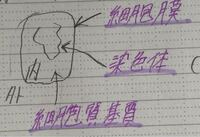 細胞膜
染色体
内
外
細胞質基質